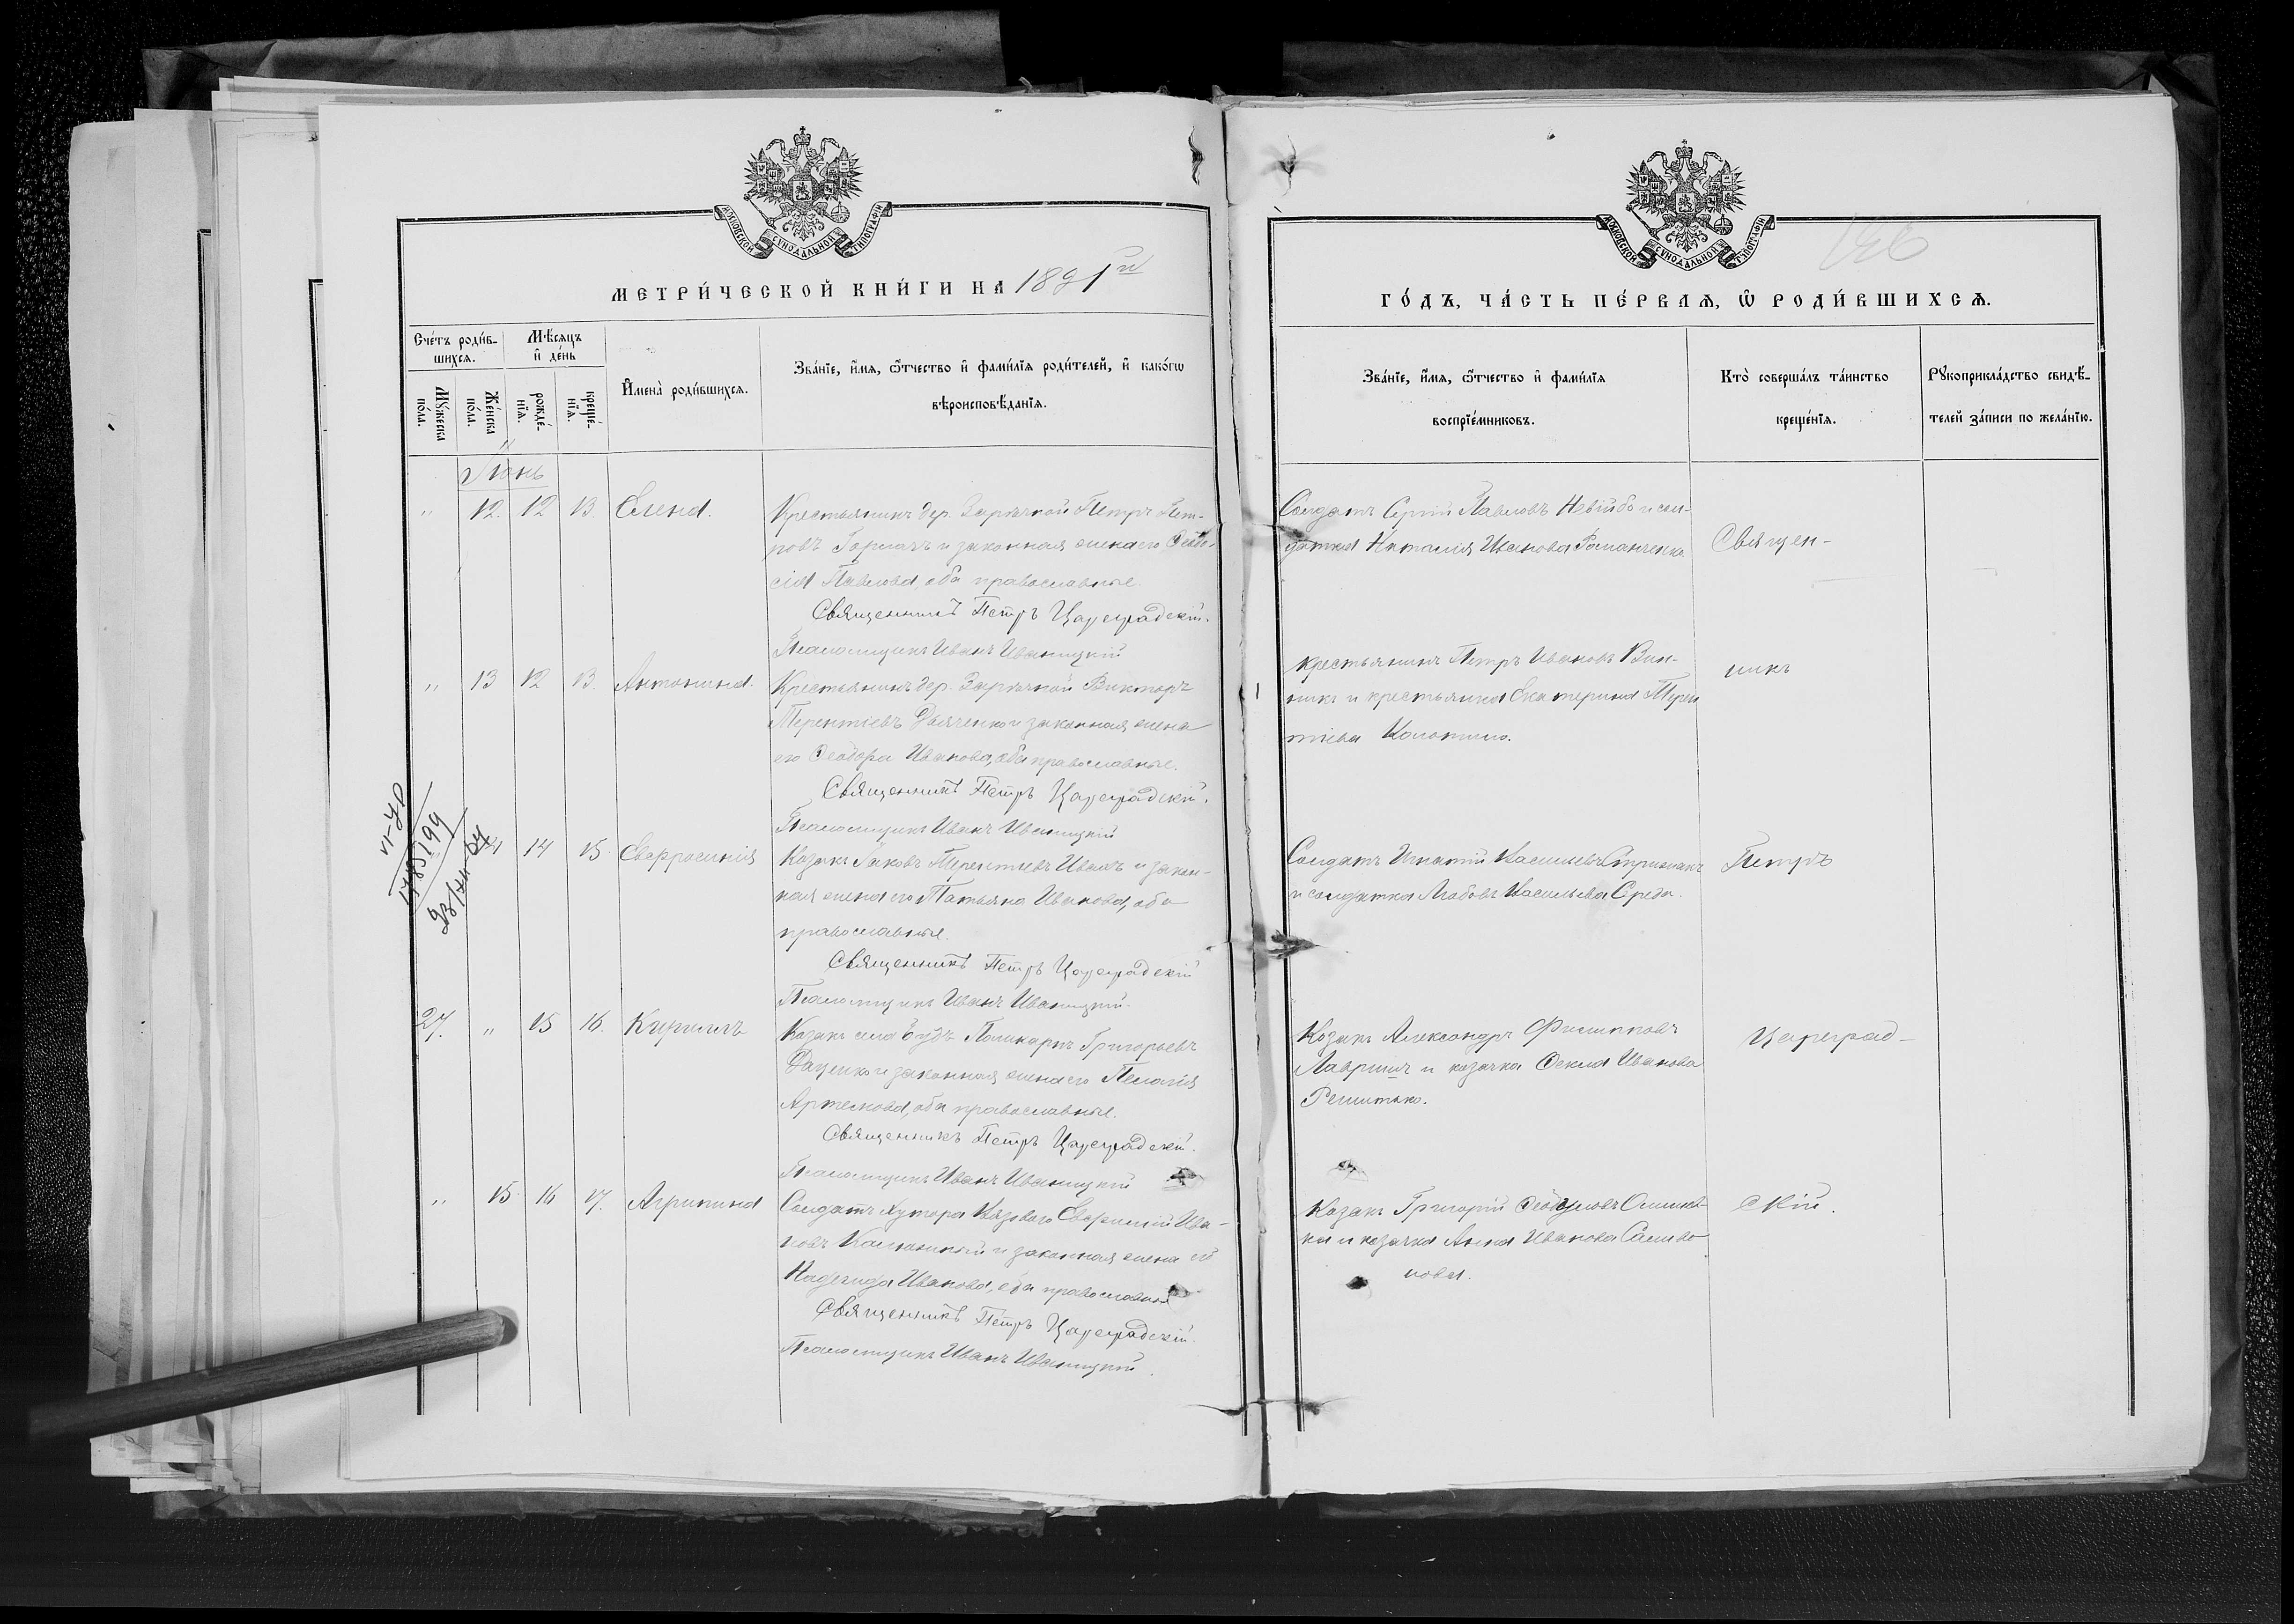 МОСКОВСКОЙ СѴНОДАЛЬНОЙ ТИПОГРАФІИ
МЕТРИ́ЧЕСКОЙ КНИ́ГИ НА 1891й
Сче́тъ роди́в-
шихсѧ.
Мѣ́сѧцъ
и҆ де́нь
Мꙋ́жеска
по́ла.
Же́нска
по́ла.
рожде́-
нїѧ.
креще́-
нїѧ.
И҆мена̀ роди́вшихсѧ.
Зва́нїе, и҆́мѧ, ѿтчество и҆ фами́лїѧ роди́телей, и҆ како́гѡ
вѣроисповѣ́данїѧ.
Іюнь
" 12. 12 13. Елена.
Крестьянинъ дер. Зарѣчной Петръ Пет-
ровъ и законная жена его Ѳеодо-
сія Павлова, оба православные.
Священникъ Петръ Цареградскій.
Псаломщикъ Иванъ Иваницкій
" 13 12 13. Антонина.
Крестьянинъ дер. Зарѣчной Викторъ
Терентіевъ Дьяченко и законная жена
его Ѳеодора Иванова, оба православные.
Священникъ Петръ Цареградскій.
Псаломщикъ Иванъ Иваницкій
14 15 Евфросинія
Козакъ Іаковъ Терентіевъ и закон-
ная жена его Татьяна Иванова, оба
православные.
Священникъ Петръ Цареградскій
Псаломщикъ Иванъ Иваницкій.
27. " 15 16. Кириллъ
Козакъ села Будъ Поликарпъ Григорьевъ
Даценко и законная жена его Пелагія
Артемова, оба православные.
Священникъ Петръ Цареградскій.
Псаломщикъ Иванъ Иваницкій
" 15 16 17. Агрипина
Солдатъ Хутора Ива-
новъ и законная жена его
Надежда Иванова, оба православные
Священникъ Петръ Цареградскій.
Псаломщикъ Иванъ Иваницкій.
МОСКОВСКОЙ СѴНОДАЛЬНОЙ ТИПОГРАФІИ
ГО́ДЪ, ЧА́СТЬ ПЕ́РВАѦ, Ѡ҆ РОДИ́ВШИХСѦ.
Зва́нїе, и҆́мѧ, ѿтчество и҆ фами́лїѧ
воспрїе́мниковъ.
Кто̀ соверша́лъ та́инство
креще́нїѧ.
Рꙋкоприкла́дство свидѣ́-
телей за́писи по жела́нїю.
Солдатъ Сергій Павловъ и сол-
датка Наталія Иванова Романченко.
Священ-
крестьянинъ Петръ Ивановъ Вин-
никъ и крестьянка Екатерина Терен
тіева
никъ
Солдатъ Игнатій Васильевъ
и солдатка Любовь Васильева Среда.
Петръ
Козакъ Александръ Филипповъ
Лавришъ и козачка Ѳекла Иванова
Решитько.
Цареград-
Козакъ Григорій
ка и козачка Анна Иванова Самво
нова.
скій.